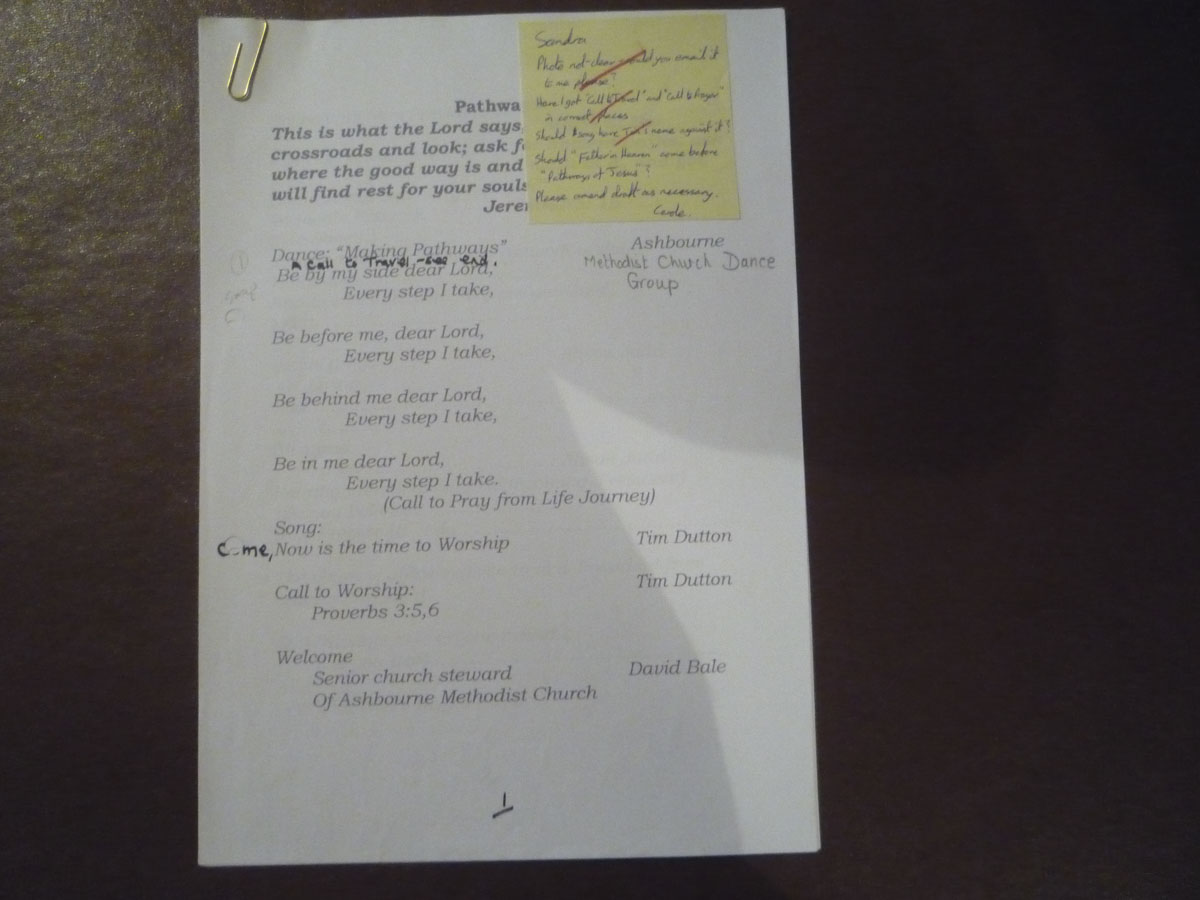 Sandra
Photo not clear would you email it
to me please?
Have I got "Call to Travel" and "Call to Prayer"
in correct places
Should song have Tim's name against it?
Should "Father in Heaven" come before
"Pathways of Jesus"?
Please amend draft as necessary.
Carole.
Pathwa
This is what the Lord says,
crossroads and look; ask fo
where the good way is and
will find rest for your souls
Jerer
Dance: "Making Pathways"
Ashbourne
Methodist Church Dance
Group
A Call to Travel - see end.
Be by my side dear Lord,
Every step I take,
Be before me, dear Lord,
Every step I take,
Be behind me dear Lord,
Every step I take,
Be in me dear Lord,
Every step I take.
(Call to Pray from Life Journey)
Song:
Come, Now is the time to Worship
Tim Dutton
Call to Worship:
Tim Dutton
Proverbs 3:5,6
Welcome
Senior church steward
David Bale
Of Ashbourne Methodist Church
1